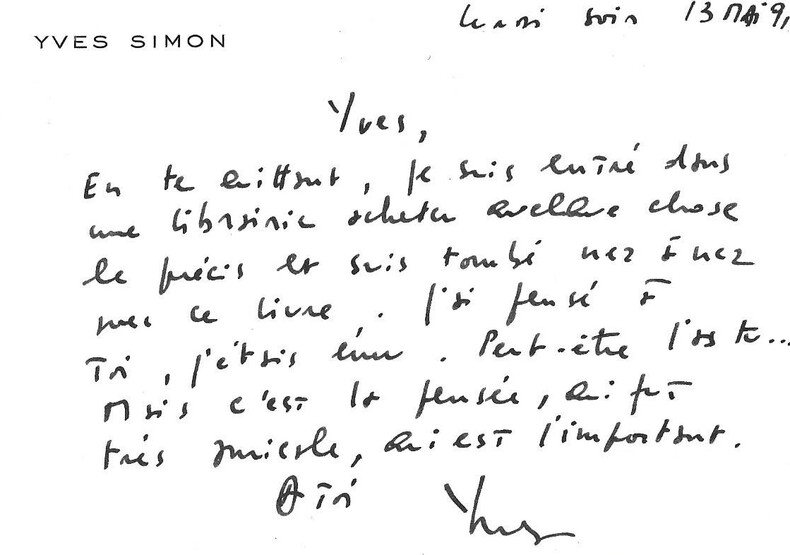 YVES SIMON
soir 13 MAI 91
Yves,
En te quittant, je suis entré dans
une librairie acheter quelque chose
de précis et suis tombé nez à nez
avec ce livre. J'ai pensé à
Toi, j'étais ému. Peut-être l'as tu...
Mais c'est la pensée, qui fut
très amicale, qui est l'important.
A Toi Yves